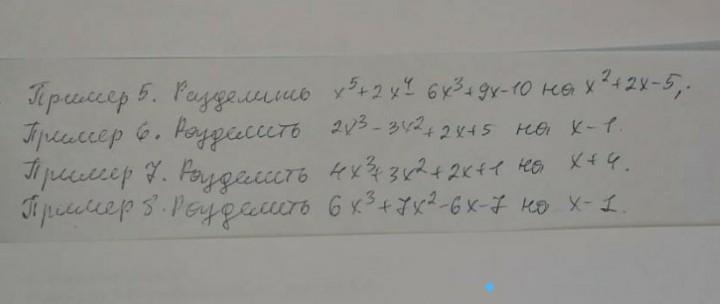 Пример 5. Разделить x⁵+2x⁴-6x³+9x-10 на x²+2x-5,.
Пример 6. Разделить 2x³-3x²+2x+5 на x-1.
Пример 7. Разделить 4x³+3x²+2x+1 на x+4.
Пример 8. Разделить 6x³+7x²-6x-7 на x-1.